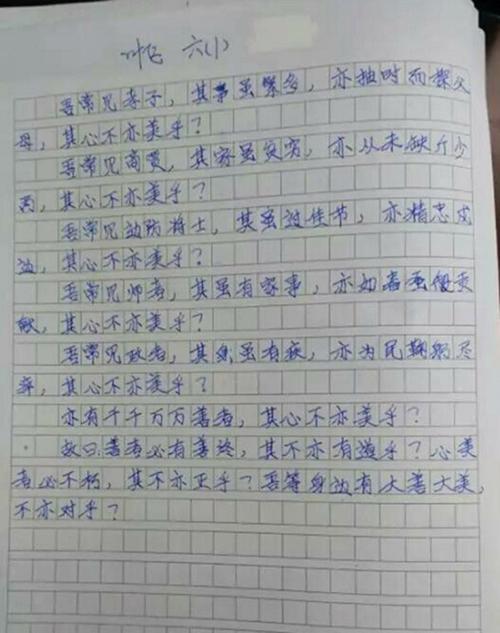 叶飞 六(1)
吾常见孝子，其事虽繁多，亦抽时而探父
母，其心不亦美乎？
吾常见商贾，其家虽贫穷，亦从未缺斤少
两，其心不亦美乎？
吾常见边防将士，其虽过佳节，亦精忠戍
边，其心不亦美乎？
吾常见师者，其虽有家事，亦如春蚕般贡
献，其心不亦美乎？
吾常见政者，其身虽有疾，亦为民鞠躬尽
瘁，其心不亦美乎？
亦有千千万万善者，其心不亦美乎？
故曰善者必有善终，其不亦有道乎？心美
者必不朽，其不亦正乎？吾等身边有大善大美，
不亦对乎？